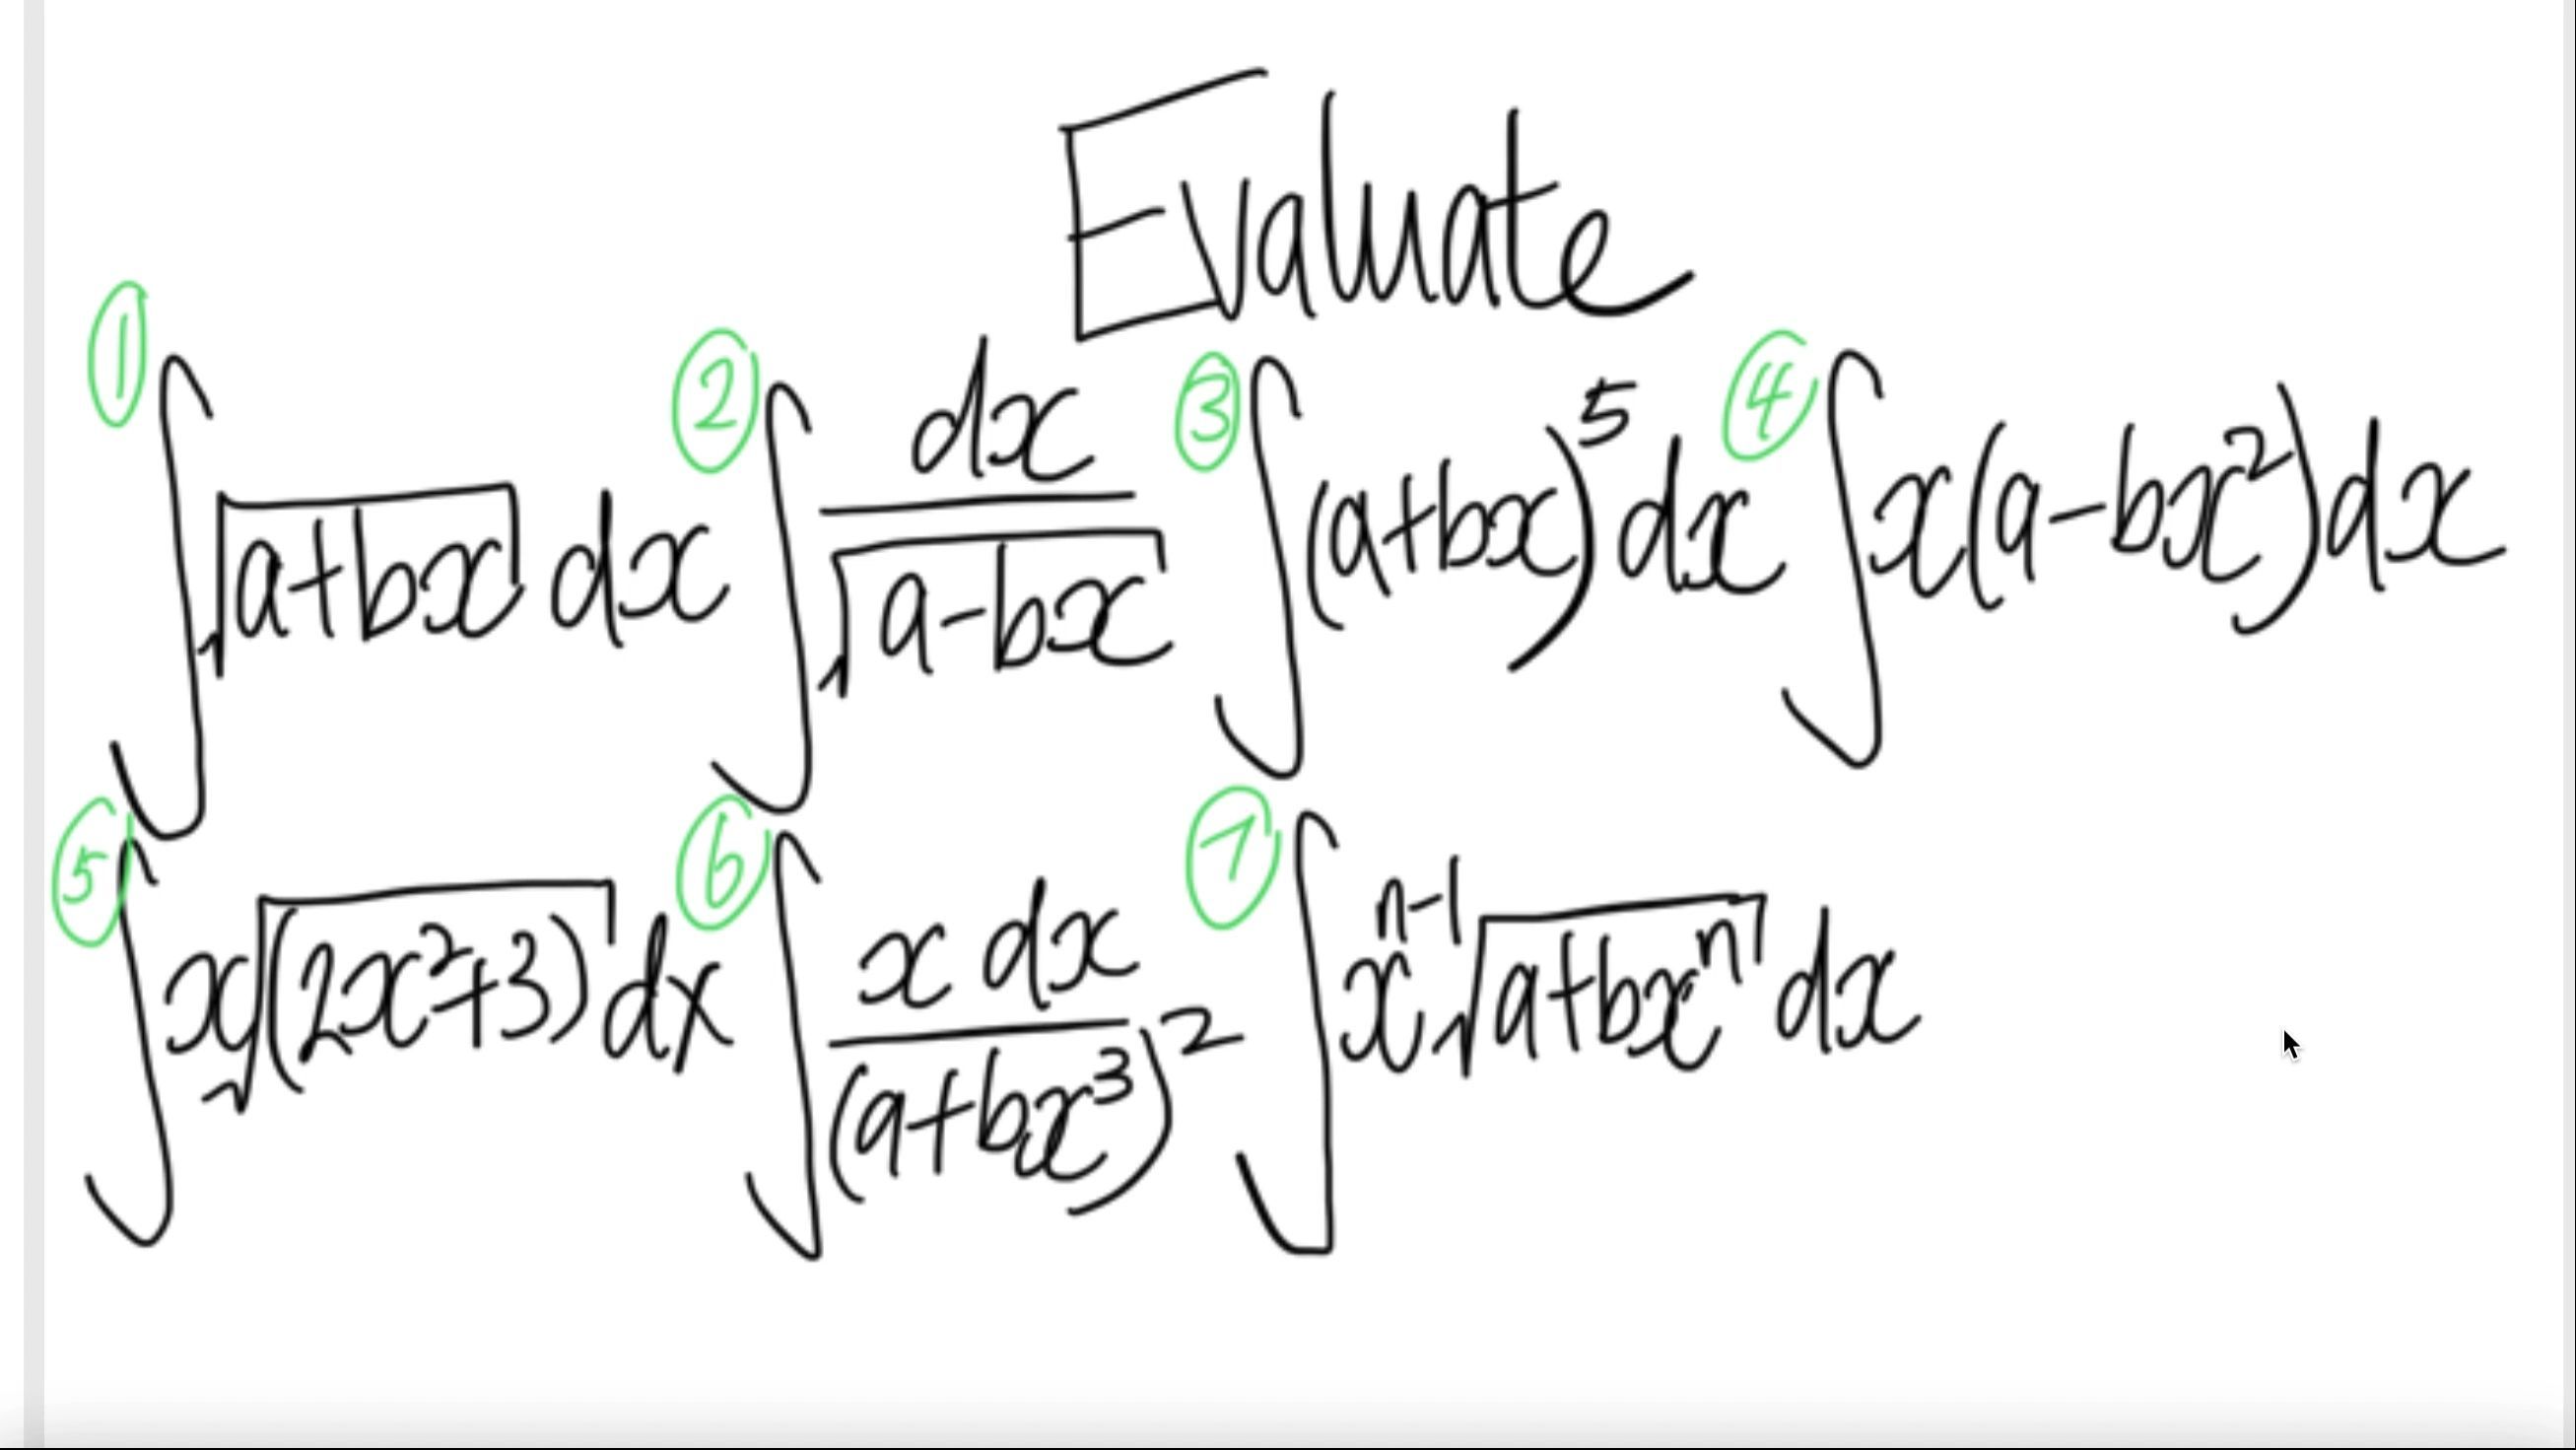 Evaluate
① ∫√(a+bx) dx ② ∫dx/√(a-bx) ③ ∫(a+bx)⁵dx ④ ∫x(a-bx²)dx
⑤ ∫x√(2x²+3) dx ⑥ ∫x dx/(a+bx³)² ⑦ ∫xⁿ⁻¹√(a+bxⁿ) dx